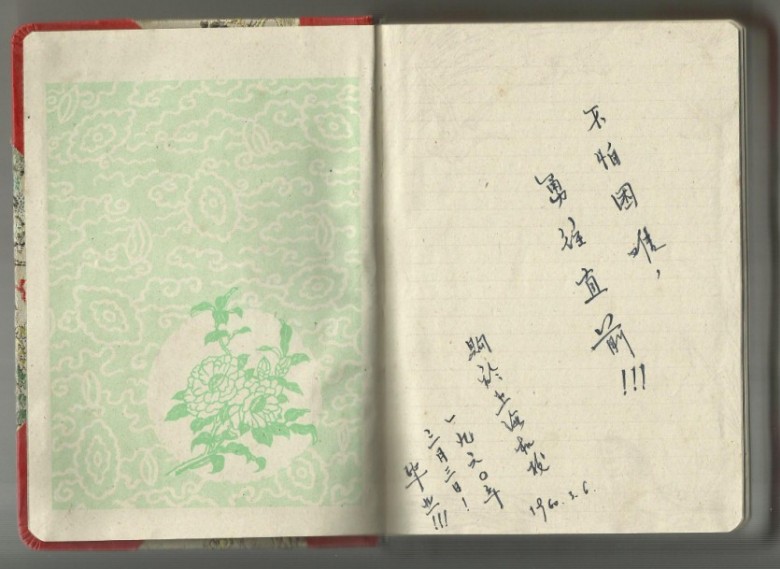 不怕困难,
勇往直前!!!
於上海机校
一九六〇年
三月三日!
毕业!!!
1960.3.6.